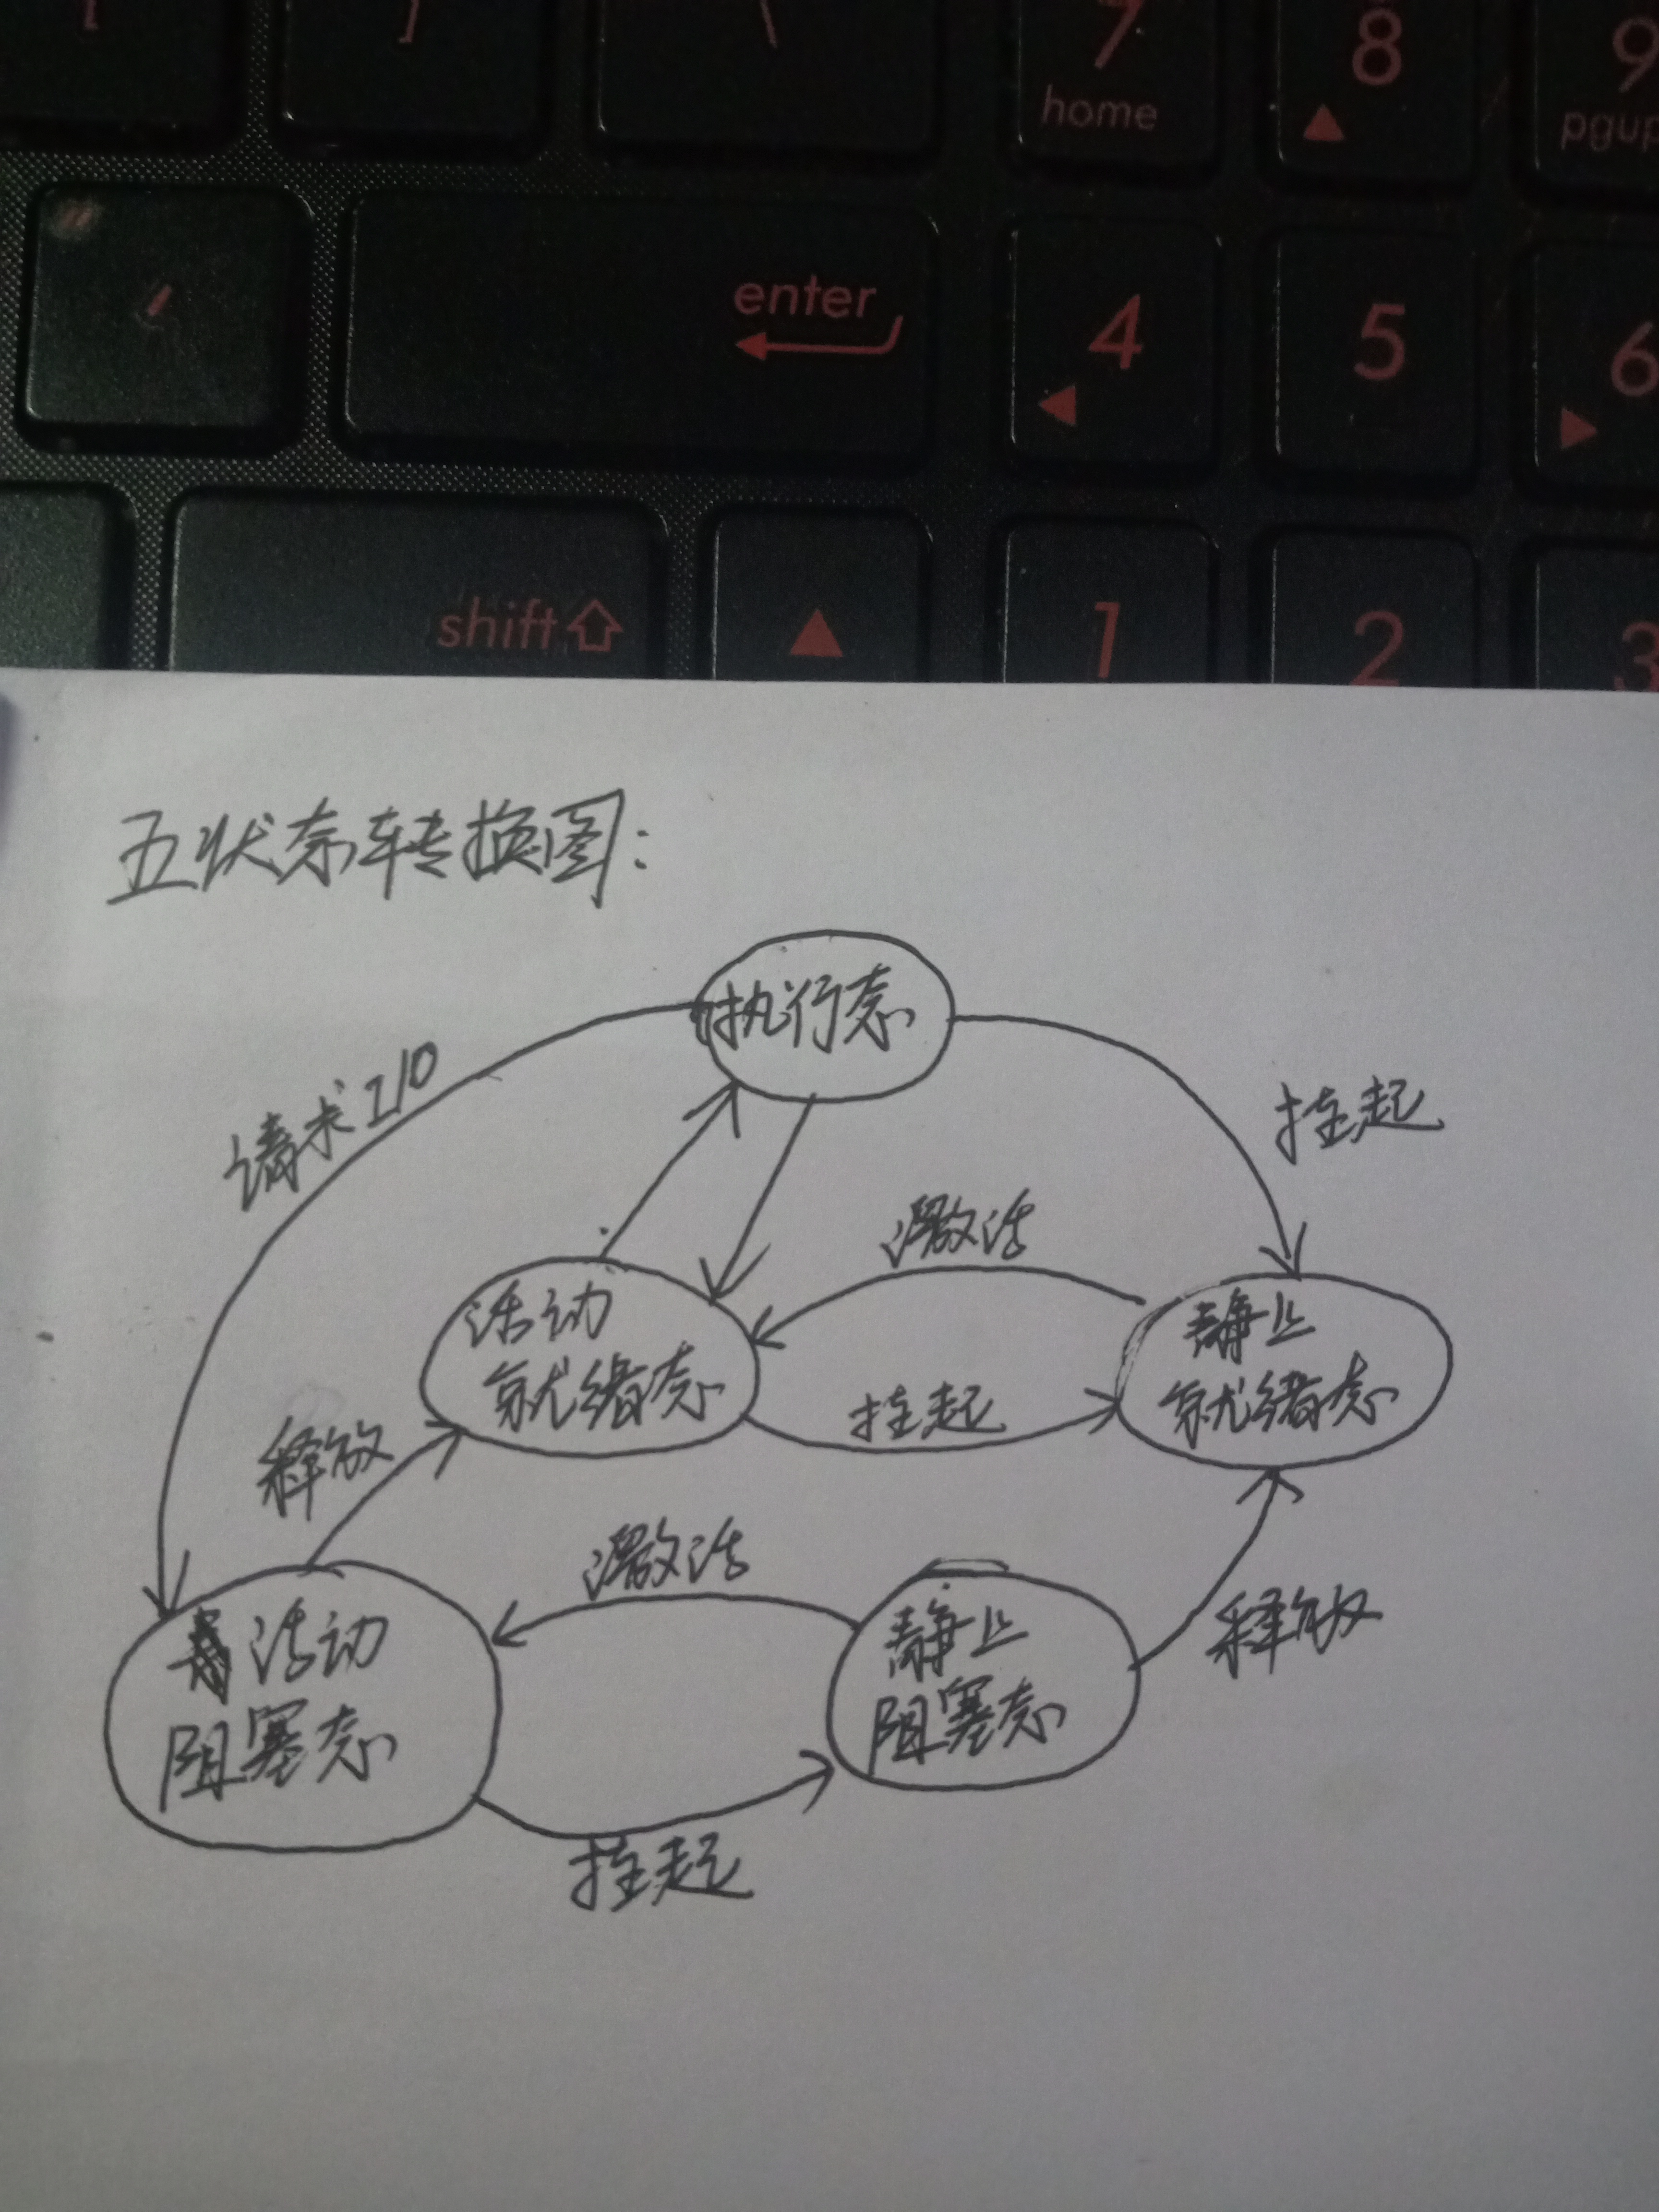 [
]
\
7
home
8
9
pgup
"
'
enter
4
5
6
shift
1
2
3
五状态转换图：
执行态
请求I/O
挂起
激活
活动
就绪态
静止
就绪态
挂起
释放
激活
活动
阻塞态
静止
阻塞态
释放
挂起